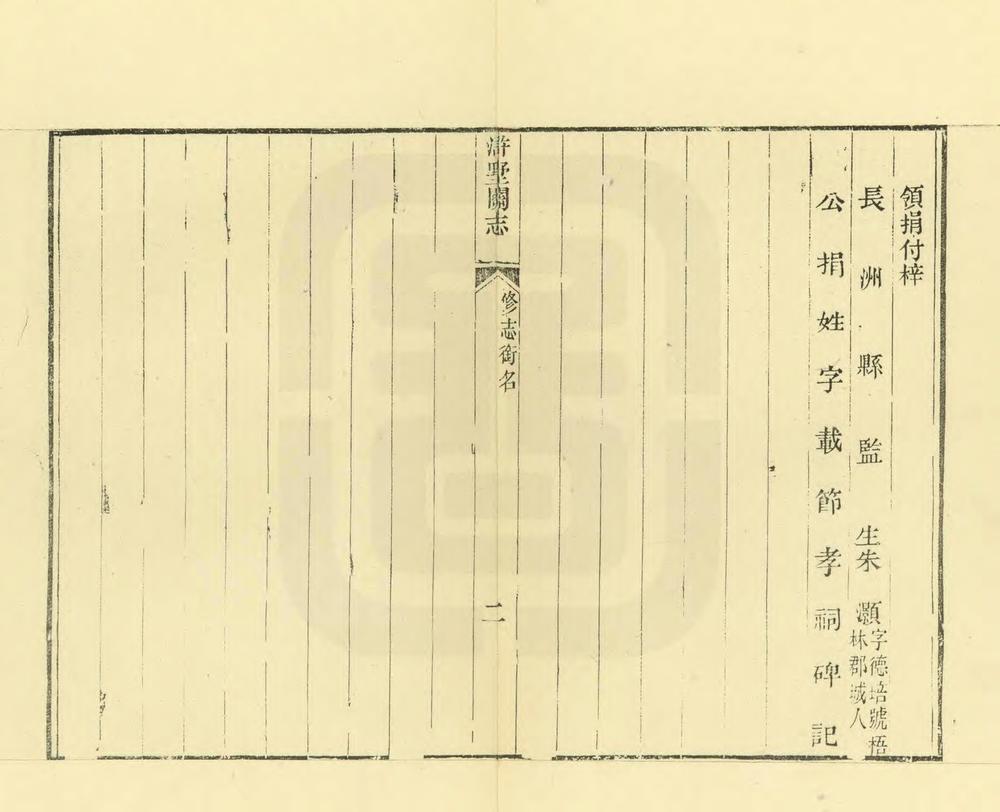 領捐付梓
長洲縣監生朱灝字德培號梧林郡城人
公捐姓字載節孝祠碑記
滸墅關志
修志銜名
二